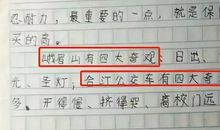 忍耐力，最重要的一点，就是保
买的高。
峨眉山有四大奇观：日出、
光、圣灯，合江公交车有四大奇
多、开得慢、挤得哭、离校门远